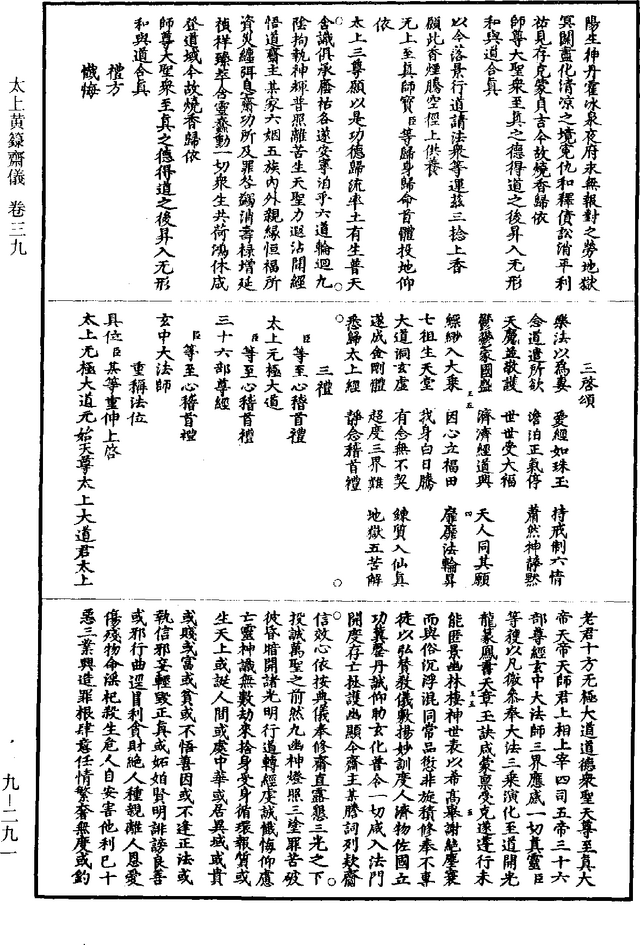 陽生神丹霍冰泉夜府永無報對之勞地獄
冥關盡化清涼之境冤仇和釋債訟消平利
祐見存克蒙貞吉今故燒香歸依
師尊大聖衆至真之德得道之後昇入无形
和與道合真
以今落景行道請法衆等運茲三捻上香
願此香煙騰空徑上供養
无上至真師寶臣等歸身歸命首體投地仰
依
太上三尊願以是功德歸流率土有生普天
含識俱承廕祐各遂安寧洎乎六道輪迴九
陰拘執神輝普照離苦生天聖力遐沾開經
悟道齋主某家六姻五族內外親緣恒福所
資災纏弭息齋功所及罪咎蠲消壽祿增延
禎祥臻萃含靈蠢動一切衆生共荷鴻休咸
登道域今故燒香歸依
師尊大聖衆至真之德得道之後昇入无形
和與道合真
禮方
懺悔
三啓頌
樂法以為妻 愛經如珠玉 持戒制六情
念道遣所欲 澹泊正氣停 蕭然神靜默
天魔並敬護 世世受大福
鬱鬱家國盛 濟濟經道興 天人同其願
縹緲入大乘 因心立福田 靡靡法輪昇
七祖生天堂 我身白日騰
大道洞玄虛 有念無不契 鍊質入仙真
遂成金剛體 超度三界難 地獄五苦解
悉歸太上經 靜念稽首禮
三禮
臣等至心稽首禮
太上无極大道
臣等至心稽首禮
三十六部尊經
臣等至心稽首禮
玄中大法師
重稱法位
具位臣某等重伸上啓
太上无極大道元始天尊太上大道君太上
老君十方无極大道道德衆聖天尊至真大
帝天帝天師君上相上宰四司五帝三十六
部尊經玄中大法師三界應感一切真靈臣
等猥以凡微忝奉大法三乘演化至道開光
龍篆鳳書天章玉訣咸蒙稟受克遂進行未
能匿景幽林棲神世表以希高舉謝絕塵寰
而與俗沉浮混同常品愆非旋積修奉不專
徒以弘贊教儀敷揚妙訓度人濟物佐國立
功冀罄丹誠仰助玄化普令一切咸入法門
開度存亡拯護幽顯今齋主某謄詞列款齋
信效心依按典儀奉修齋直露懇三光之下
投誠萬聖之前然九幽神燈照三塗罪苦破
彼昏暗開諸光明行道轉經虔誠懺悔仰慮
亡靈神識無數劫來捨身受身循環報質或
生天上或誕人間或處中華或居異域或貴
或賤或富或貧或不悟善因或不逢正法或
執信邪妄輕毀正真或妬始賢明誹謗良善
或邪行曲逕冒利貪財絕人種親離人恩愛
傷殘物命淫祀殺生危人自安害他利己十
惡三業興造罪根肆意任情繁奢無度或釣
太上黃籙齋儀 卷三九
九—二九一